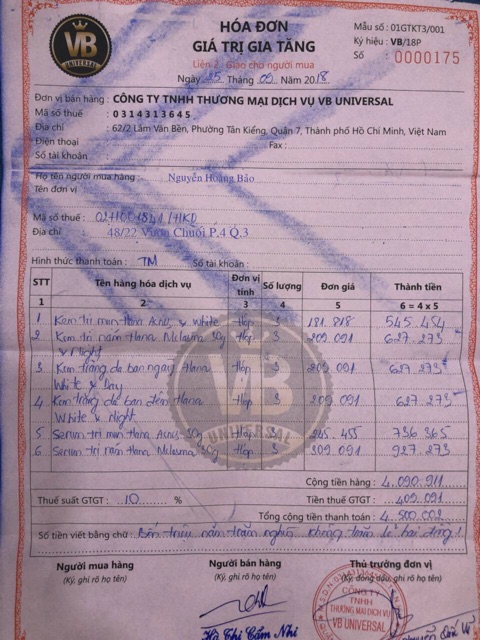 VB
UNIVERSAL
HÓA ĐƠN
GIÁ TRỊ GIA TĂNG
Liên 2: Giao cho người mua
Ngày 25 Tháng 09 Năm 2018
Mẫu số : 01GTKT3/001
Ký hiệu : VB/18P
Số : 0000175
Đơn vị bán hàng : CÔNG TY TNHH THƯƠNG MẠI DỊCH VỤ VB UNIVERSAL
Mã số thuế : 0314313645
Địa chỉ : 62/2 Lâm Văn Bền, Phường Tân Kiểng, Quận 7, Thành phố Hồ Chí Minh, Việt Nam
Điện thoại : Fax :
Số tài khoản :
Họ tên người mua hàng : Nguyễn Hoàng Bảo
Tên đơn vị
Mã số thuế : /HKD
Địa chỉ : 48/22 Vườn Chuối P.4 Q.3
Hình thức thanh toán : TM Số tài khoản :
STT Tên hàng hóa dịch vụ Đơn vị tính Số lượng Đơn giá Thành tiền
1 2 3 4 5 6 = 4 x 5
1 Kem trị mụn Hana Acnis & White Hộp 3 181.818 545.454
2 Kem trị nám Hana Melasma 30g Hộp 3 209.091 627.273
& Night
3 Kem trắng da ban ngày Hana Hộp 3 209.091 627.273
White & Day
4 Kem trắng da ban đêm Hana Hộp 3 209.091 627.273
White & Night
5 Serum trị mụn Hana Acnis 30g Hộp 3 245.455 736.365
6 Serum trị nám Hana Melasma 30g Hộp 3 309.091 927.273
Cộng tiền hàng : 4.090.911
Thuế suất GTGT : 10 % Tiền thuế GTGT : 409.091
Tổng cộng tiền thanh toán : 4.500.002
Số tiền viết bằng chữ : Bốn triệu năm trăm nghìn không trăm lẻ hai đồng
Người mua hàng Người bán hàng Thủ trưởng đơn vị
(Ký, ghi rõ họ tên) (Ký, ghi rõ họ tên) (Ký, đóng dấu, ghi rõ họ tên)
CÔNG TY
TNHH
THƯƠNG MẠI DỊCH VỤ
VB UNIVERSAL
Hà Thị Cẩm Nhi